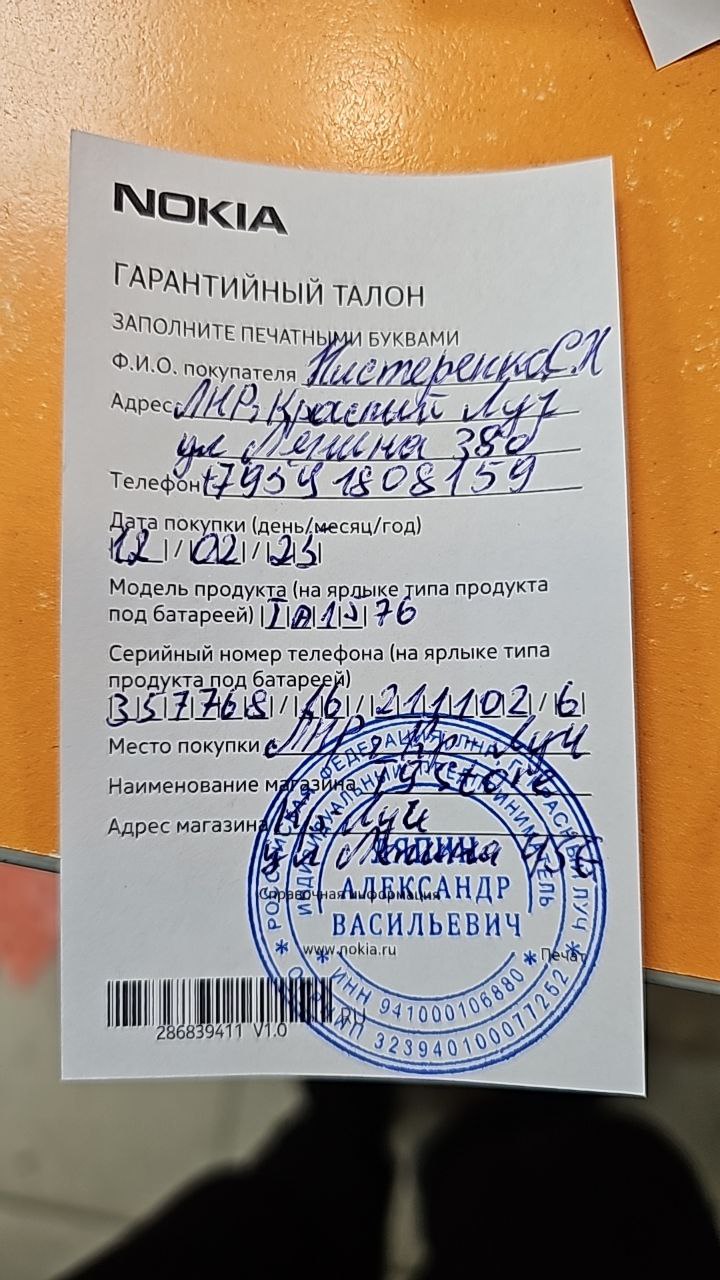 NOKIA
ГАРАНТИЙНЫЙ ТАЛОН
ЗАПОЛНИТЕ ПЕЧАТНЫМИ БУКВАМИ
Ф.И.О. покупателя Нистеренко С.Н
Адрес ЛНР, Красный Луч
ул Ленина 38а
Телефон +79591808159
Дата покупки (день/месяц/год)
12/02/23
Модель продукта (на ярлыке типа продукта
под батареей)
Серийный номер телефона (на ярлыке типа
продукта под батареей)
357768/16/211102/6
Место покупки ЛНР, Кр Луч
Наименование магазина
Адрес магазина Кр. Луч
ул Ленина
Справочная информация
www.nokia.ru
Печать
286839411 V1.0
РОССИЙСКАЯ ФЕДЕРАЦИЯ ЛНР Г. КРАСНЫЙ ЛУЧ
ИНДИВИДУАЛЬНЫЙ ПРЕДПРИНИМАТЕЛЬ
АЛЕКСАНДР
ВАСИЛЬЕВИЧ
ИНН 941000106880
ОГРНИП 323940100077252